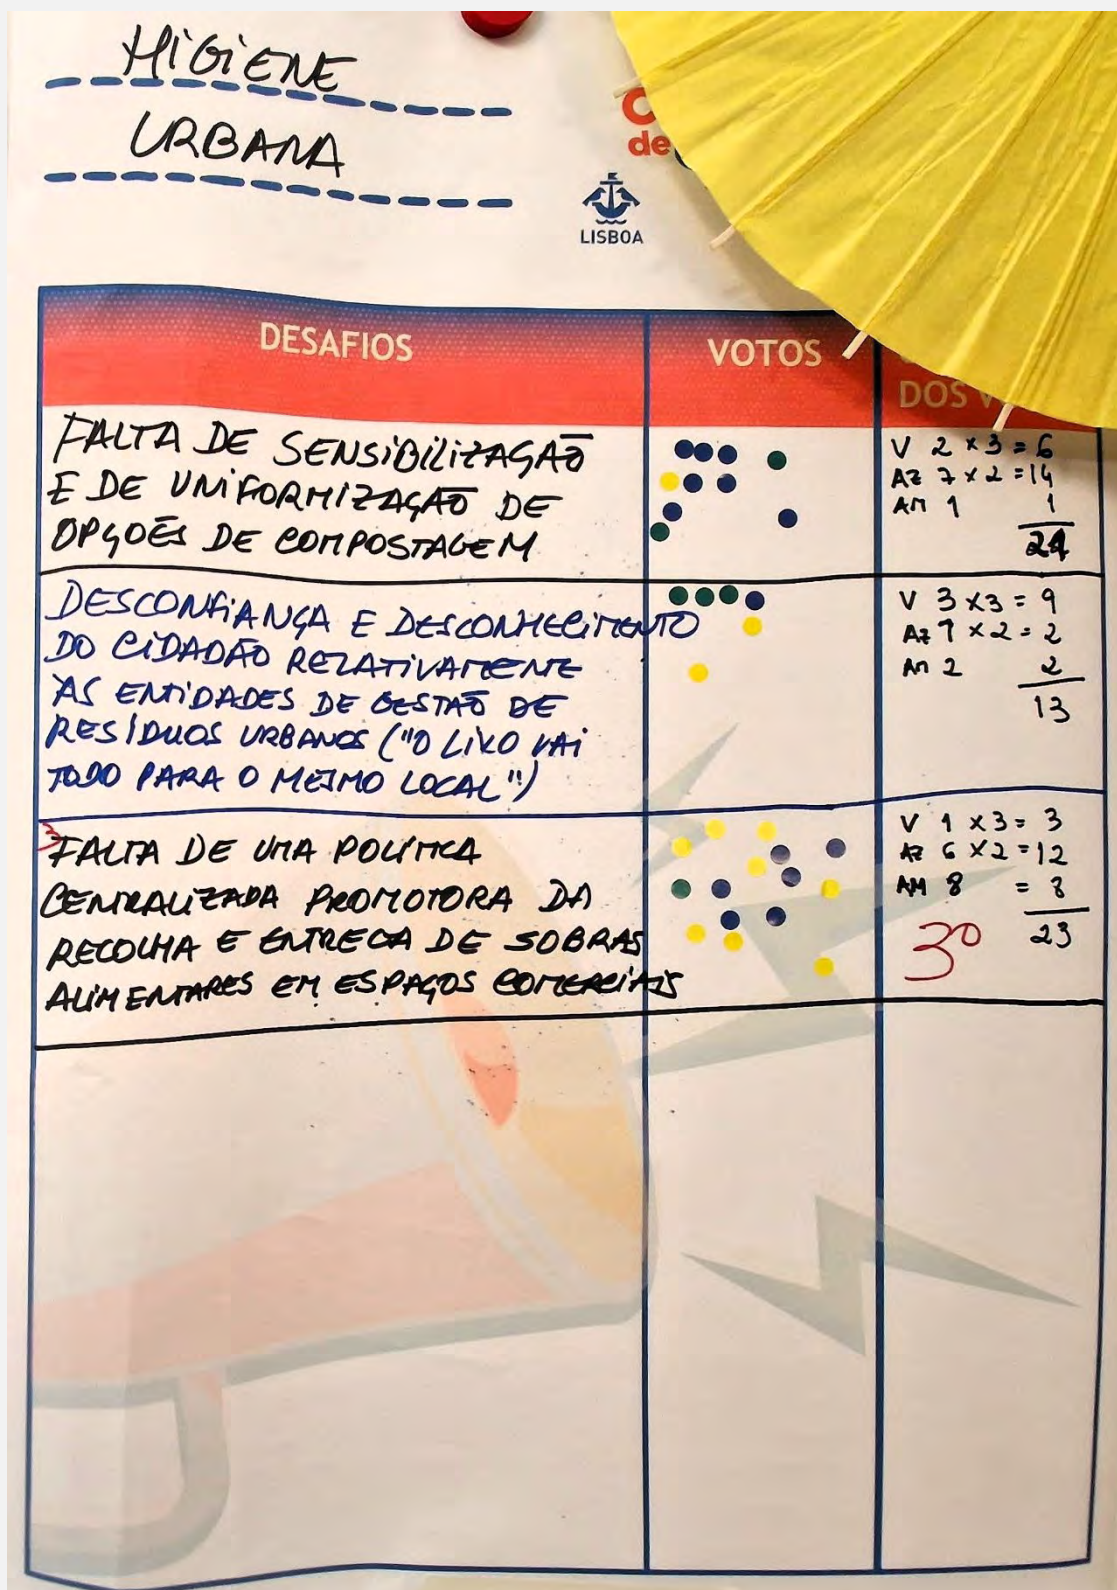 HIGIENE
URBANA
de
LISBOA
DESAFIOS
VOTOS
DOS
FALTA DE SENSIBILIZAÇÃO
E DE UNIFORMIZAÇÃO DE
OPÇÕES DE COMPOSTAGEM
V 2 x 3 = 6
AZ 7 x 2 = 14
AM 1 1
21
DESCONFIANÇA E DESCONHECIMENTO
DO CIDADÃO RELATIVAMENTE
ÀS ENTIDADES DE GESTÃO DE
RESÍDUOS URBANOS ("O LIXO VAI
TODO PARA O MESMO LOCAL")
V 3 x 3 = 9
AZ 1 x 2 = 2
AM 2 2
13
FALTA DE UMA POLÍTICA
CENTRALIZADA PROMOTORA DA
RECOLHA E ENTREGA DE SOBRAS
ALIMENTARES EM ESPAÇOS COMERCIAIS
V 1 x 3 = 3
AZ 6 x 2 = 12
AM 8 = 8
23
3º